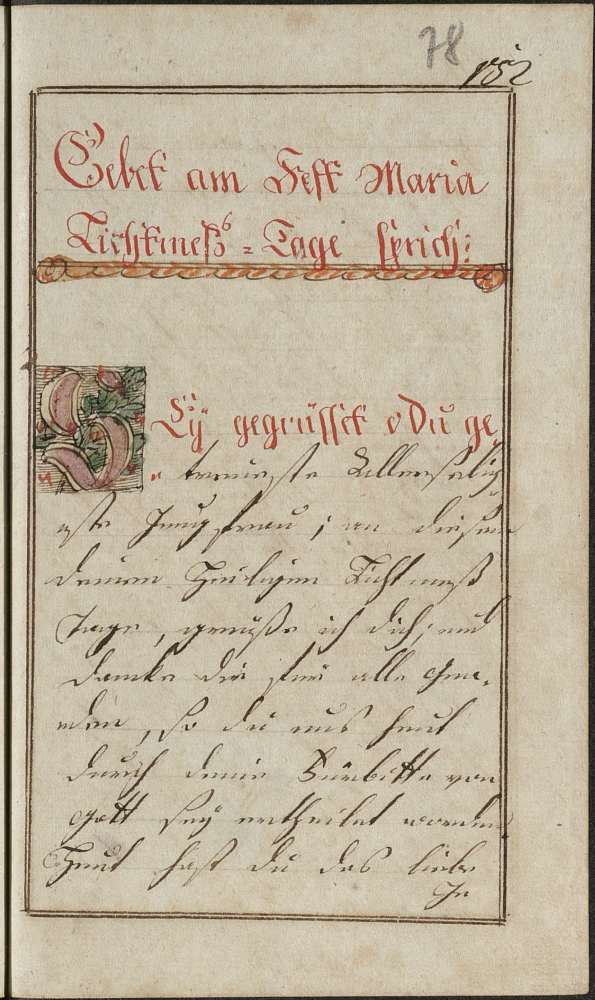 78
152
Gebet am Fest Maria
Lichtmeß = Tage sprich:
S Ey gegrüsset o Du ge
treueste Allerselig
ste Jungfrau; an diesem
deinen Heiligen Lichtmeß
Tage, grüße ich dich; und
danke dir für alle Gna,
den, so du uns heut
durch deine Fürbitte von
Gott sey ertheilet worden
Heut hast du das liebe
Je